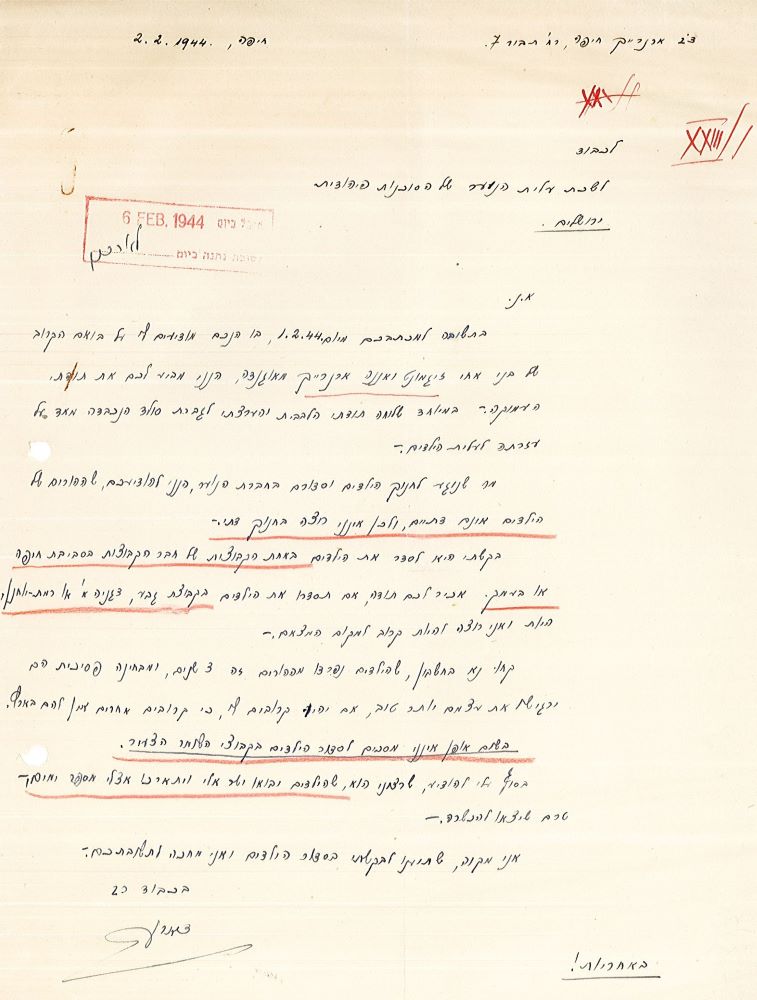 חיפה, 2.2.1944.
ד"ר ארנרייק חיפה, רח' תבור 7.
XXIII/1
לכבוד
לשכת עלית הנוער של הסוכנות היהודית
ירושלים.
6 FEB. 1944 ביום
תשובה נתנה ביום
א.נ.
בתשובה למכתבכם מיום 1.2.44, בו הנכם מודיעים לי על בואם הקרוב
של בני אחי זיגמונט ואננה ארנרייק מאוגנדה, הנני מביע לכם את תודתי
העמוקה.- במיוחד שלוחה תודתי הלבבית והערצתי לגברת סולד הנכבדה מאד על
עזרתה לעלית הילדים.-
מה שנוגע לחנוך הילדים וסדורם בחברת הנוער, הנני להודיעכם, שההורים של
הילדים אינם דתיים, ולכן אינני רוצה בחנוך דתי.-
בקשתי היא לסדר את הילדים באחת הקבוצות של חבר הקבוצות בסביבת חיפה
או בעמק. אכיר לכם תודה, אם תסדרו את הילדים בקבוצת גבע, דגניה א' או רמת-יוחנן,
היות ואני רוצה להיות קרוב למקום המצאם.-
קחו נא בחשבון, שהילדים נפרדו מההורים זה 3 שנים, ומבחינה פסיכית הם
ירגישו את עצמם יותר טוב, אם יהיו קרובים לי, כי קרובים אחרים אין להם בארץ.
בשום אופן אינני מסכים לסדור הילדים בקבוצי השומר הצעיר.
בסוף עלי להודיע, שרצוני הוא, שהילדים יבואו ישר אלי ויתארחו אצלי מספר ימים-
טרם שיצאו להכשרה.-
אני מקוה, שתיענו לבקשתי בסדור הילדים ואני מחכה לתשובתכם.-
בכבוד רב
באחריות!